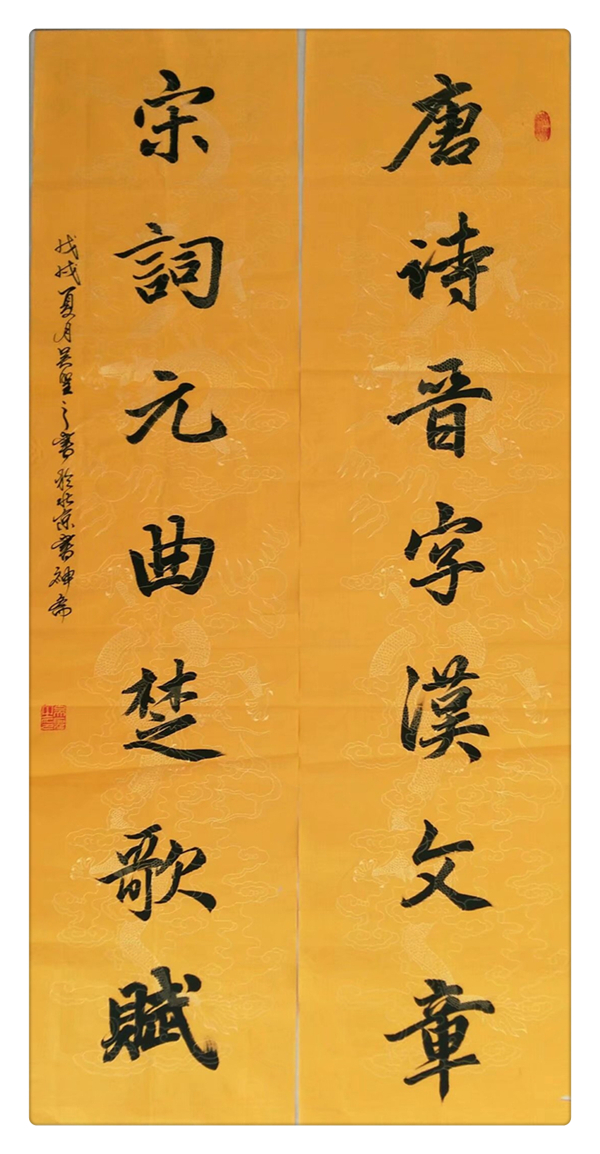 唐诗晋字漢文章
宋詞元曲楚歌賦
戊戌夏月吴星之書於北京書神斋